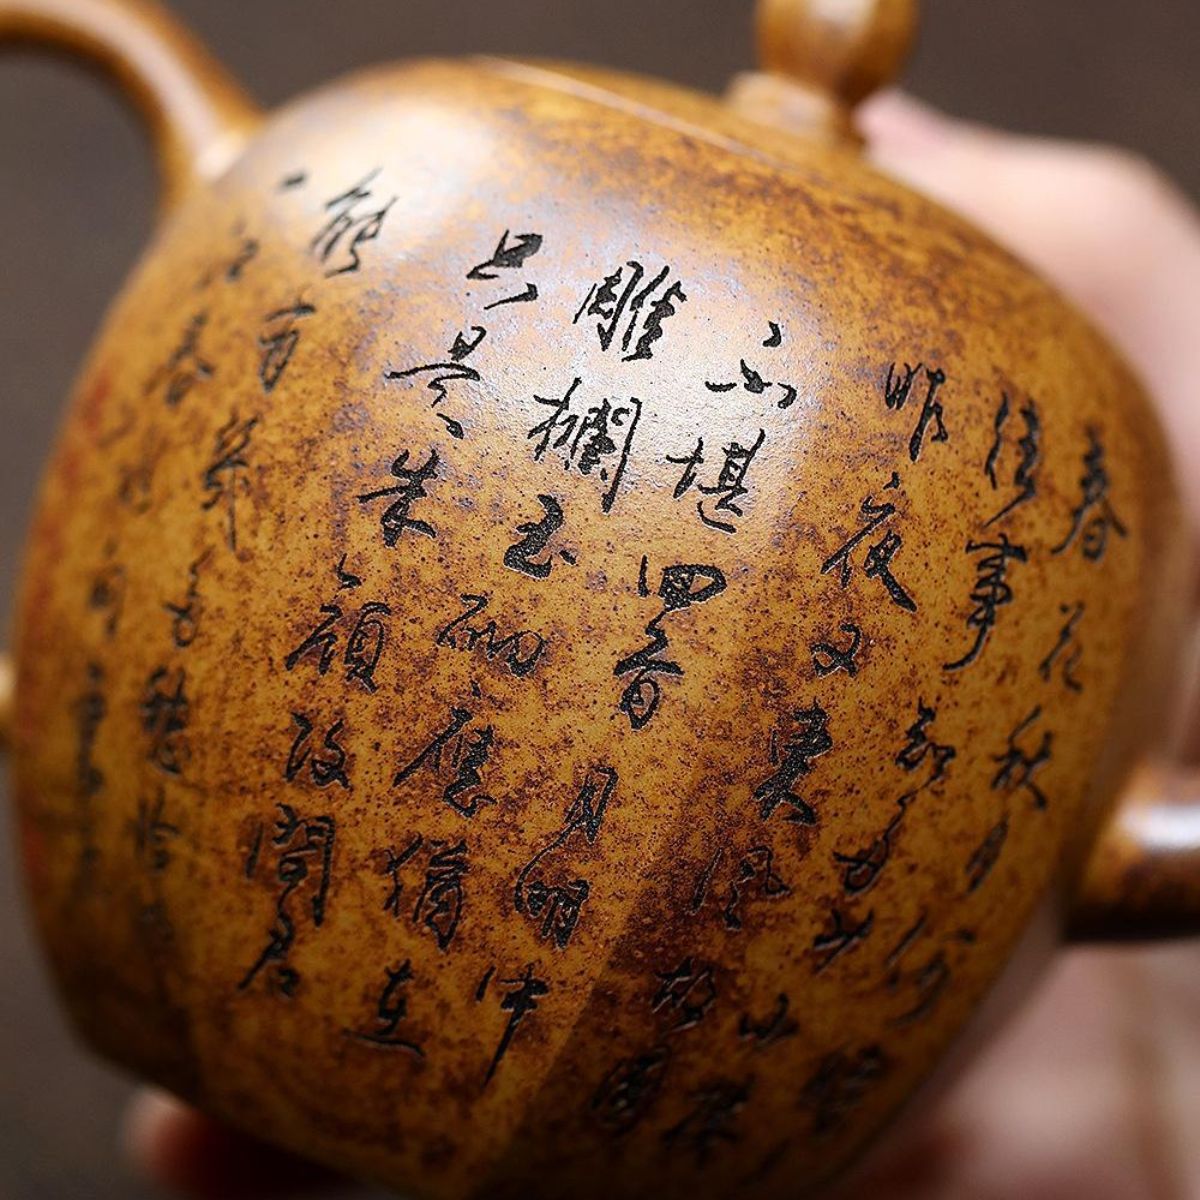 春花秋月何時
往事知多少小樓
昨夜又東風故國
不堪回首月明中
雕欄玉砌應猶在
只是朱顏改問君
能有幾多愁恰似
一江春水向東